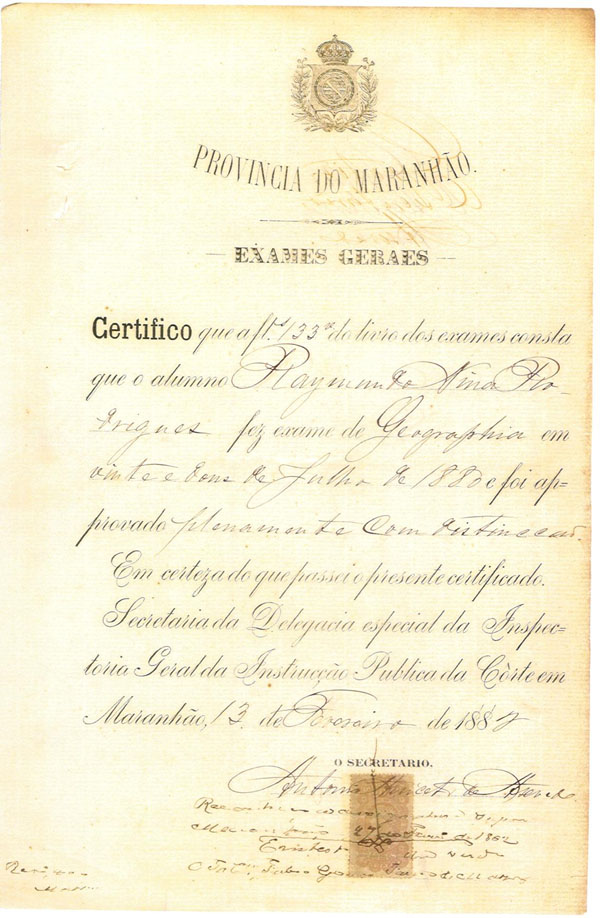 PROVINCIA DO MARANHÃO.
EXAMES GERAES
Certifico que a fl. 133 do livro dos exames consta
que o alumno Raymundo Nina Ro-
drigues fez exame de Geographia em
vinte e dous de Julho de 1880 e foi ap-
provado plenamente com distincção.
Em certeza do que passei o presente certificado.
Secretaria da Delegacia especial da Inspec-
toria Geral da Instrucção Publica da Côrte em
Maranhão, 13 de Fevereiro de 1882
O SECRETARIO.
Antonio de
de 1882